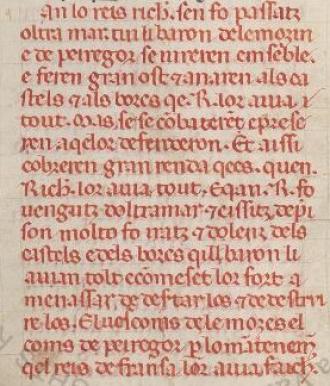 An lo reis rich. sen fo passatz
oltra mar. tuit li baron de lemozin
e de peiregor se iureren ensemble.
e feren gran ost 7 anaren als ca
stels 7 als borcs qe .R. lor auia
tout. mas se conbateret e prese
ren aqelor defenderon. Et aissi
cobreren gran renda qecs. quen.
Rich. lor auia tout. Eqan .R. fo
uengutz doltramar 7 eissitz de pri
son molto fo iratz 7 dolenz dels
castels e dels borcs qill baron li
auian tolt ecomenset lor fort a
menassar. de desertar los 7 de destru
re los. El uescoms de lemozes el
coms de peiregor. per lo mantenem
qel reis de fransa lor auia faich